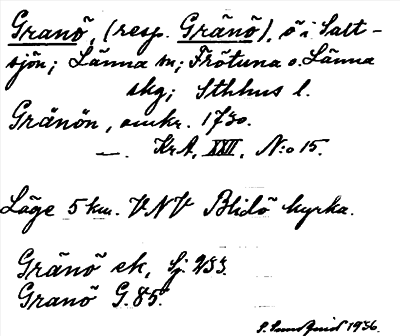 Granö, (resp. Gränö), ö i Salt-
sjön; Länna sn; Frötuna o. Länna
skg; Sthlms l.
Gränön, omkr. 1730.
—. KrA, XXVI, N:o 15.
Läge 5 km. VNV Blidö kyrka.
Gränö ek, Sj. 233.
Granö G. 85.
1936.